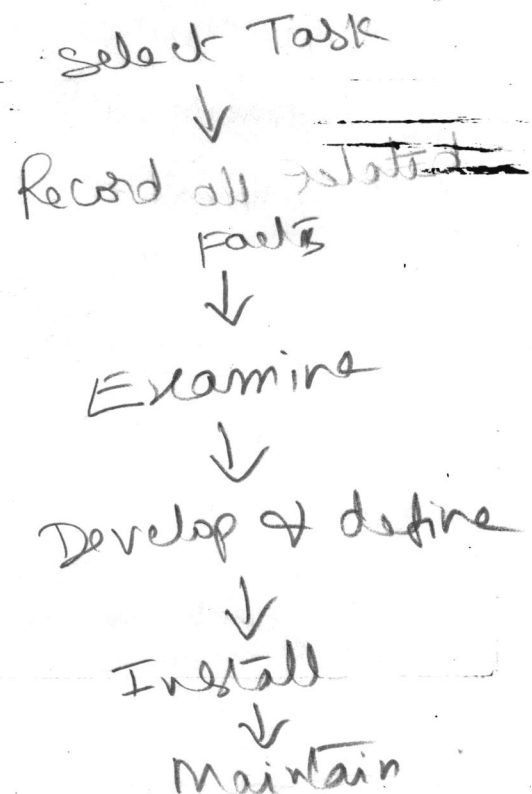 Select Task
↓
Record all related
Facts
↓
Examine
↓
Develop & define
↓
Install
↓
Maintain